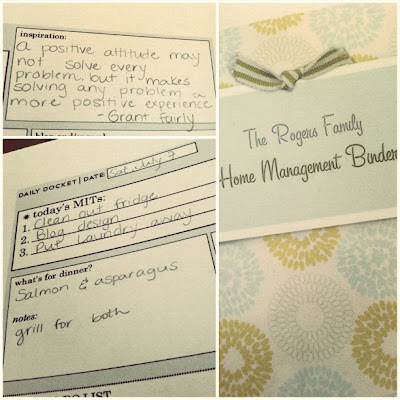 inspiration:
a positive attitude may
not solve every
problem, but it makes
solving any problem a
more positive experience
- Grant Fairly
DAILY DOCKET | DATE: Sat July 7
* today's MITs:
1. Clean out fridge
2. Blog design
3. Put laundry away
what's for dinner?
Salmon & asparagus
notes:
grill for both
DO LIST
The Rogers Family
Home Management Binder